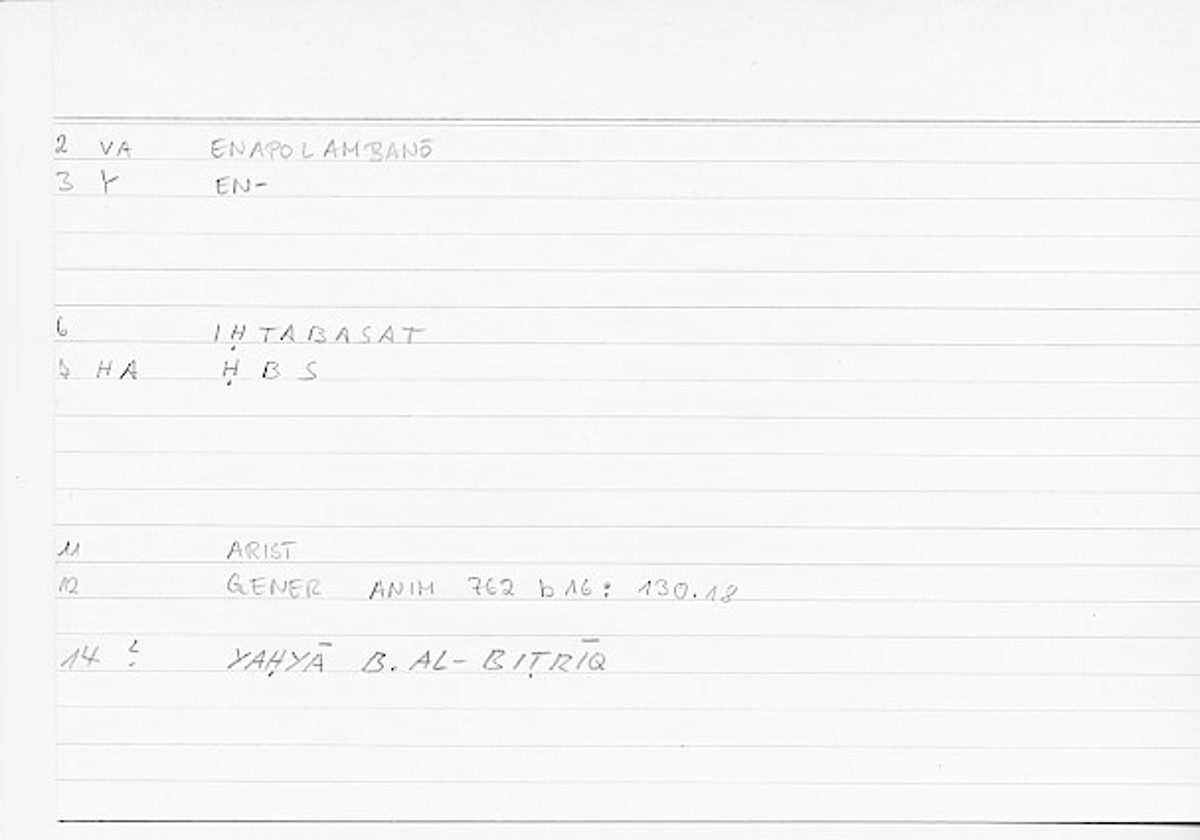 2 VA ENAPOLAMBANŌ
3 Y EN-
6 IḤTABASAT
7 HA Ḥ B S
11 ARIST
12 GENER ANIM 762 b 16: 130.18
14 ? YAḤYĀ B. AL-BIṬRĪQ